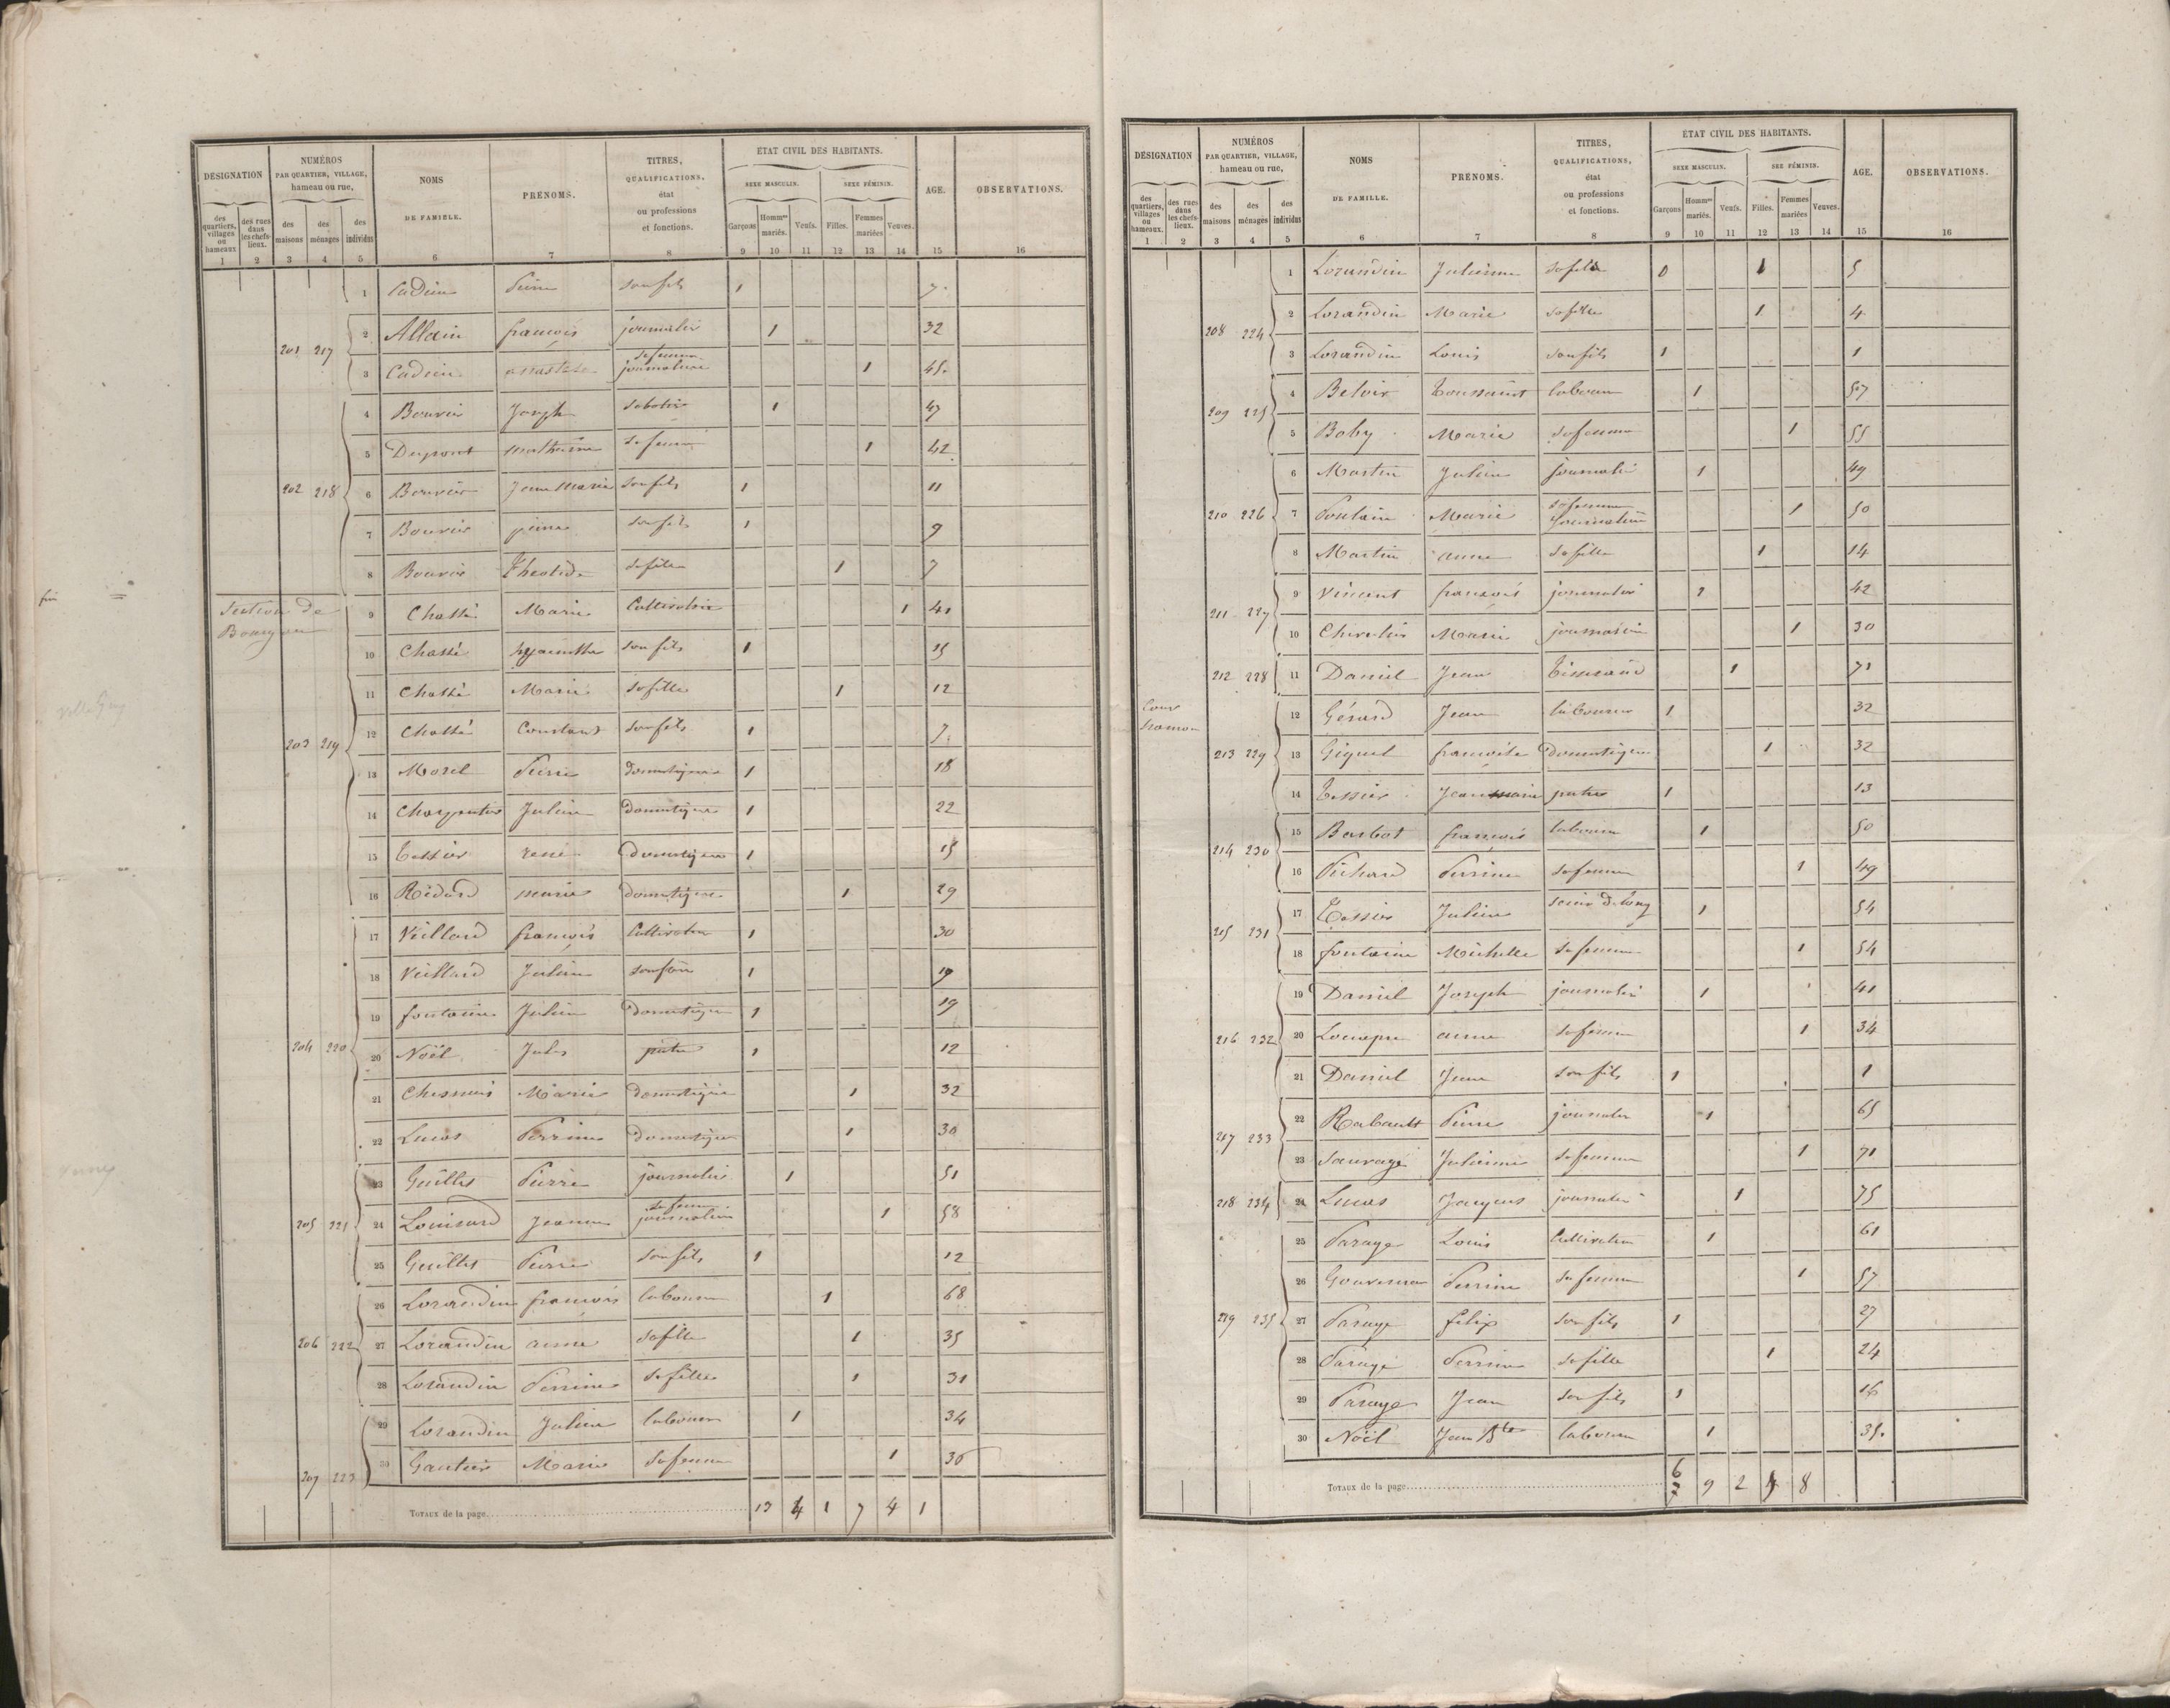 DÉSIGNATION
NUMÉROS
PAR QUARTIER, VILLAGE,
hameau ou rue,
NOMS
DE FAMILLE.
PRÉNOMS.
TITRES,
QUALIFICATIONS,
état
ou professions
et fonctions.
ÉTAT CIVIL DES HABITANTS.
SEXE MASCULIN.
SEXE FÉMININ.
AGE.
OBSERVATIONS.
des quartiers, villages ou hameaux
des rues dans les chefs-lieux.
des maisons
des ménages
des individus
Garçons
Hommes mariés.
Veufs.
Filles.
Femmes mariées
Veuves.
1 2 3 4 5 6 7 8 9 10 11 12 13 14 15 16
1 Cadieu Pierre son fils 1 7
201 217 2 Allain françois journalier 1 32
3 Cadieu anastase sa femme journalière 1 45
4 Bouvier Joseph sabotier 1 47
5 Dupont mathurine sa femme 1 42
202 218 6 Bouvier Jean Marie son fils 1 11
7 Bouvier pierre son fils 1 9
8 Bouvier sa fille 1 7
fin
Section de
9 Chassé Marie Cultivatrice 1 41
10 Chassé hyacinthe son fils 1 15
11 Chassé Marie sa fille 1 12
203 219 12 Chassé Constant son fils 1 7
13 Morel Pierre domestique 1 18
14 Charpentier Julien domestique 1 22
15 Tessier rené domestique 1 15
16 Rédard marie domestique 1 29
17 Veillard françois Cultivateur 1 30
18 Veillard Julien son frère 1 19
19 fontaine Julien domestique 1 19
204 220 20 Noël Jules patre 1 12
21 Chesnais Marie domestique 1 32
22 Lucas Perrine domestique 1 30
23 Guillet Pierre journalier 1 51
205 221 24 Louisard Jeanne sa femme journalière 1 58
25 Guillet Pierre son fils 1 12
26 Lorandin françois laboureur 1 68
206 222 27 Lorandin anne sa fille 1 35
28 Lorandin Perrine sa fille 1 31
29 Lorandin Julien laboureur 1 34
207 223 30 Gautier Marie sa femme 1 36
TOTAUX de la page 13 4 1 7 4 1
DÉSIGNATION
NUMÉROS
PAR QUARTIER, VILLAGE,
hameau ou rue,
NOMS
DE FAMILLE.
PRÉNOMS.
TITRES,
QUALIFICATIONS,
état
ou professions
et fonctions.
ÉTAT CIVIL DES HABITANTS.
SEXE MASCULIN.
SEXE FÉMININ.
AGE.
OBSERVATIONS.
des quartiers, villages ou hameaux.
des rues dans les chefs-lieux.
des maisons
des ménages
des individus
Garçons
Hommes mariés.
Veufs.
Filles.
Femmes mariées
Veuves.
1 2 3 4 5 6 7 8 9 10 11 12 13 14 15 16
1 Lorandin Julienne sa fille 0 1 5
208 224 2 Lorandin Marie sa fille 1 4
3 Lorandin Louis son fils 1 1
209 225 4 Beloir Toussaint laboureur 1 57
5 Boby Marie sa femme 1 55
6 Martin Julien journalier 1 49
210 226 7 Poulain Marie sa femme journalière 1 50
8 Martin anne sa fille 1 14
211 227 9 Vincent françois journalier 1 42
10 Chevalier Marie journalière 1 30
212 228 11 Daniel Jean Tisserand 1 71
12 Gérard Jean laboureur 1 32
213 229 13 Giquel françoise domestique 1 32
14 Tessier Jean patre 1 13
214 230 15 Barbot françois laboureur 1 50
16 Pichard Perrine sa femme 1 49
215 231 17 Tessier Julien scieur de long 1 54
18 fontaine Michelle sa femme 1 54
19 Daniel Joseph journalier 1 41
216 232 20 anne sa femme 1 34
21 Daniel Jean son fils 1 1
217 233 22 Rabault Pierre journalier 1 65
23 Sauvage Julienne sa femme 1 71
218 234 24 Lucas Jacques journalier 1 75
25 Parage Louis Cultivateur 1 61
26 Perrine sa femme 1 57
219 235 27 Parage félix son fils 1 27
28 Parage Perrine sa fille 1 24
29 Parage Jean son fils 1 16
30 Noël Jean Bte laboureur 1 35
TOTAUX de la page 6 7 9 2 8